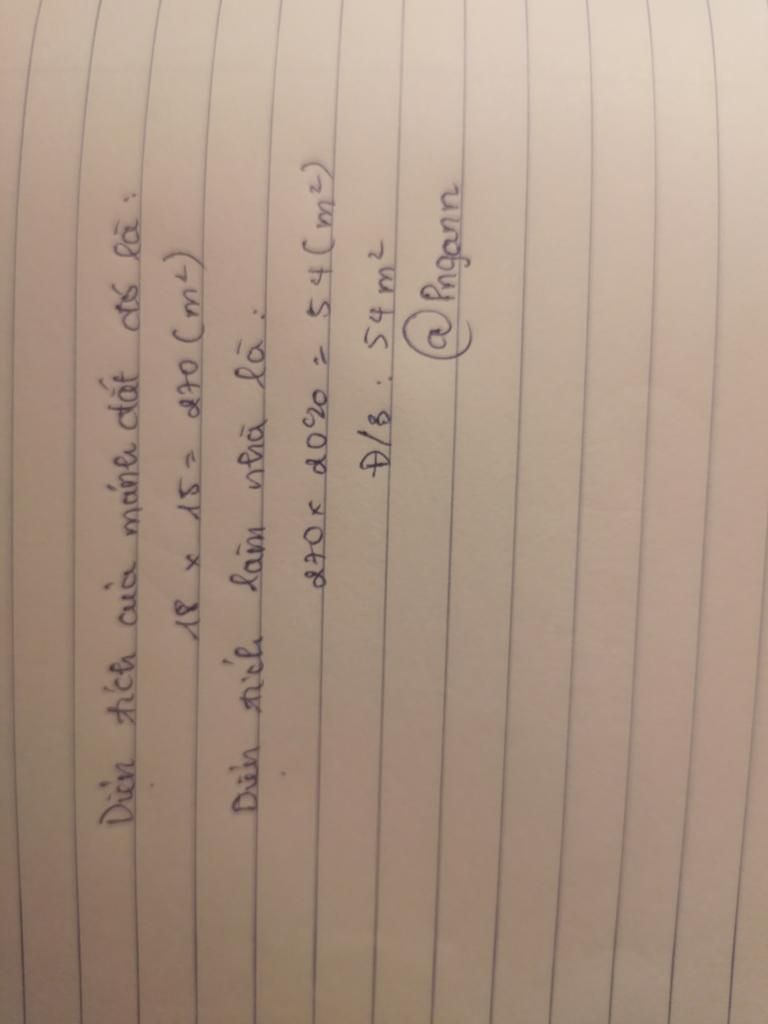 Diện tích của mảnh đất đó là:
18 x 15 = 270 (m²)
Diện tích làm nhà là:
270 x 20% = 54 (m²)
Đ/S: 54 m²
@Pngann